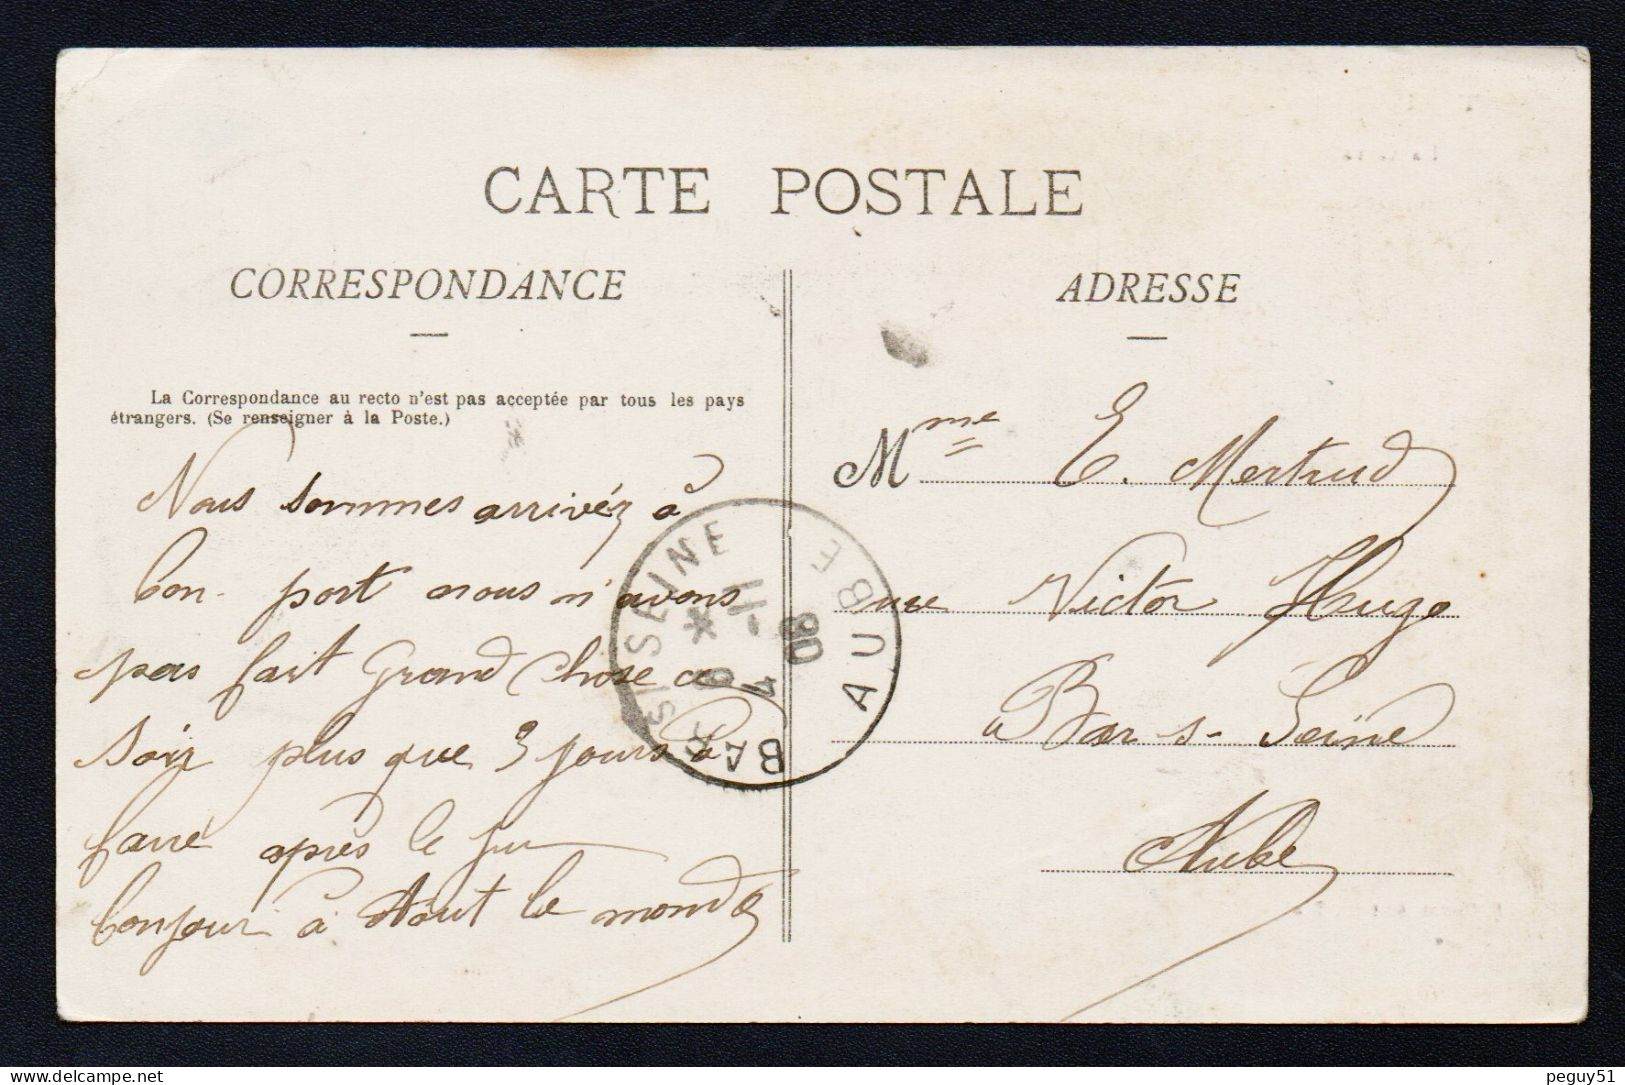 CARTE POSTALE
CORRESPONDANCE
La Correspondance au recto n'est pas acceptée par tous les pays
étrangers. (Se renseigner à la Poste.)
Nous sommes arrivéz à
bon port nous n'avons
pas fait Grand Chose ce
Soir plus que 3 jours à
faire après le
bonjour à tout le monde
ADRESSE
Mme E. Mertrud
rue Victor Hugo
à Bar-s-Seine
Aube
BAR-S-SEINE
AUBE
delcampe.net
peguy51